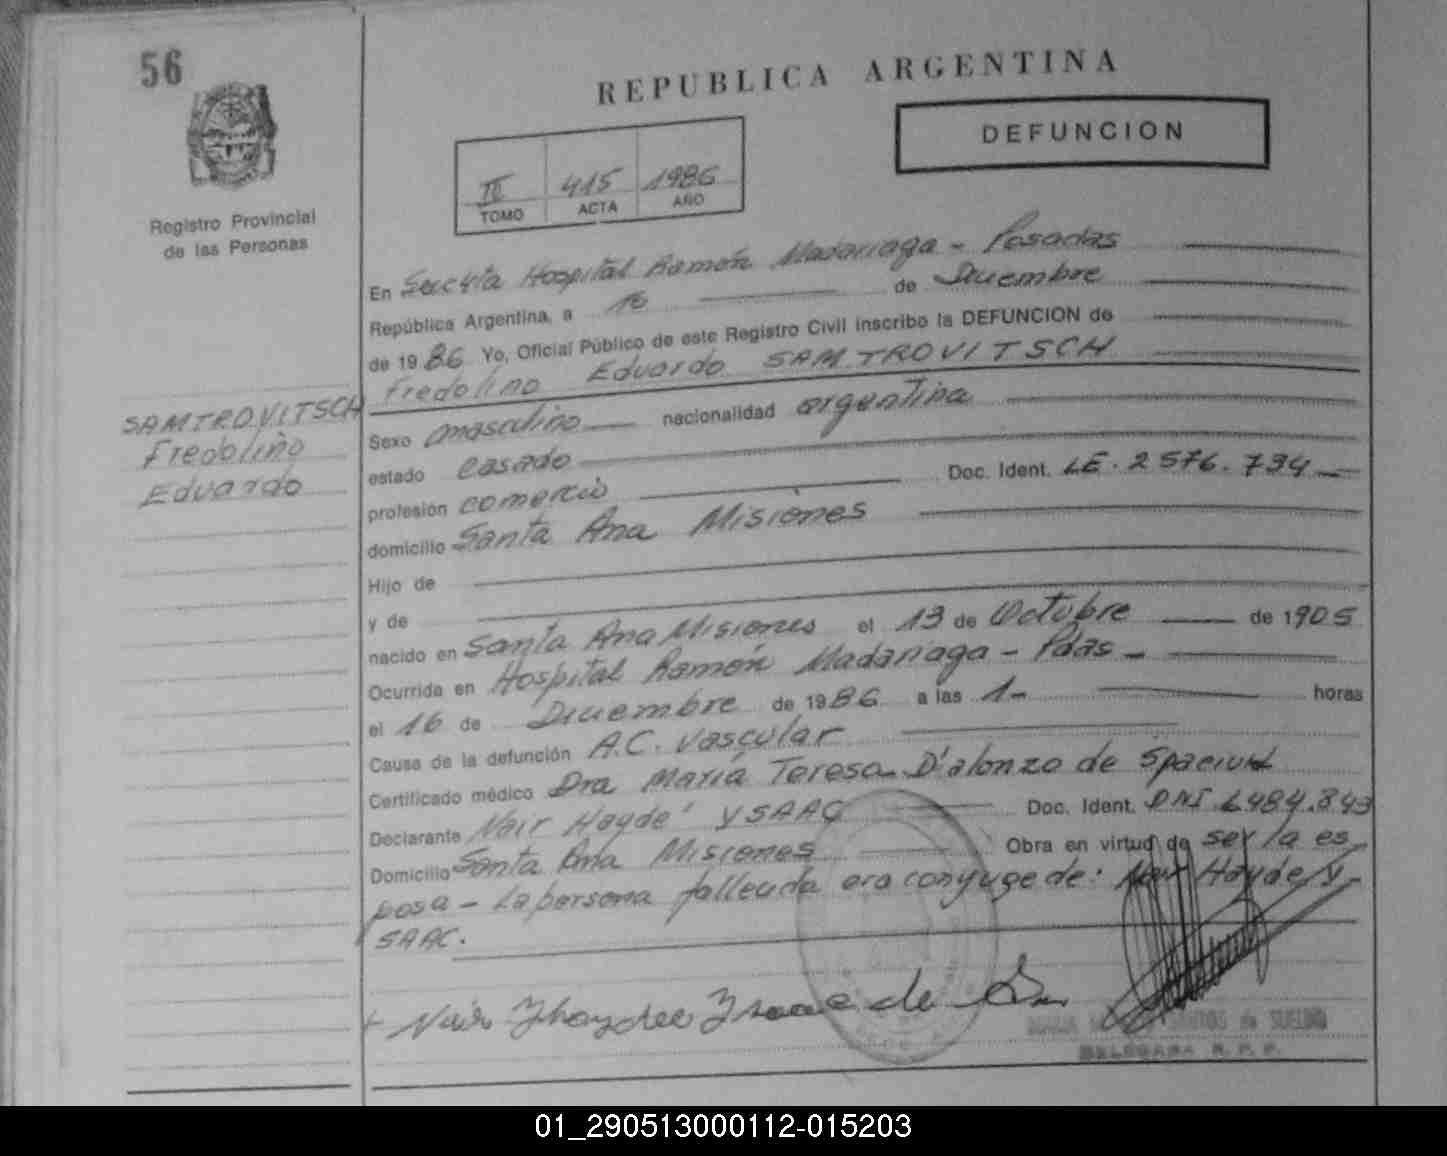 56
REPUBLICA ARGENTINA
DEFUNCION
II 415 1986
TOMO ACTA AÑO
Registro Provincial
de las Personas
En Hospital Ramón Madariaga - Posadas
República Argentina, a 16 de Diciembre
de 1986 Yo, Oficial Público de este Registro Civil inscribo la DEFUNCION de
Fredolino Eduardo SAMTROVITSCH
SAMTROVITSCH
Fredolino
Eduardo
Sexo masculino nacionalidad argentina
estado casado
profesión comercio Doc. Ident. LE. 2576.734
domicilio Santa Ana Misiones
Hijo de
y de
nacido en Santa Ana Misiones el 13 de Octubre de 1905
Ocurrida en Hospital Ramón Madariaga - Pdas -
el 16 de Diciembre de 1986 a las 1- horas
Causa de la defunción A.C. vascular
Certificado médico Dra María Teresa D'alonzo de Spaciuk
Declarante Nair Haydé YSAAC Doc. Ident. DNI 6484.843
Domicilio Santa Ana Misiones Obra en virtud de ser la es
posa - La persona fallecida era conyuge de: Nair Haydé Y-
SAAC.
Nair Haydee Ysaac de
MARIA SANTOS de SUELDO
DELEGADA R. P. P.
01_290513000112-015203